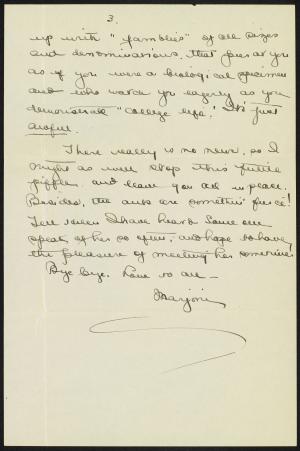 3.
up with "families" of all sizes
and denominations, that gaze at you
as if you were a biological specimen
and who watch you eagerly as you
demonstrate "college life." It's just
awful.
There really is no news, so I
might as well stop this futile
piffle and leave you all in peace.
Besides, the ants are somethin' fierce!
Tell I have heard some one
speak of her so often, and hope to have
the pleasure of meeting her sometime.
Bye bye. Love to all —
Marjorie